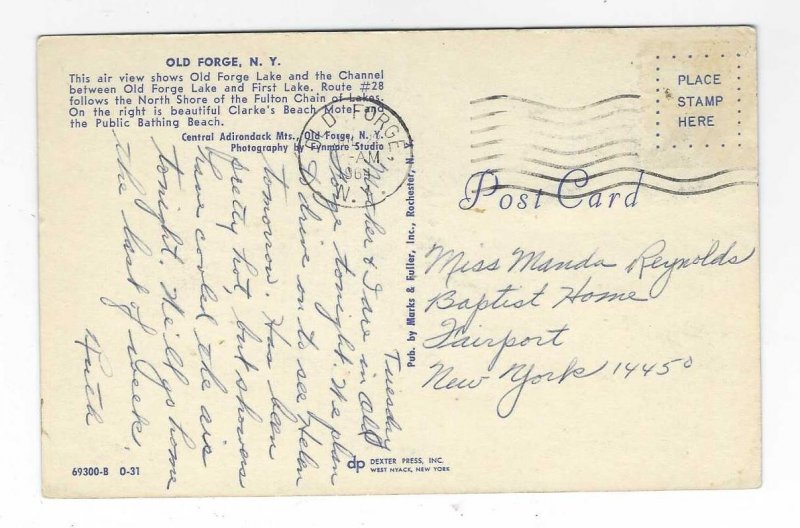 OLD FORGE, N. Y.
This air view shows Old Forge Lake and the Channel
between Old Forge Lake and First Lake, Route #28
follows the North Shore of the Fulton Chain of Lakes.
On the right is beautiful Clarke's Beach Motel and
the Public Bathing Beach.
Central Adirondack Mts., Old Forge, N. Y.
Photography by Fynmore Studio
OLD FORGE,
AM
196
N.Y.
PLACE
STAMP
HERE
Post Card
Tuesday
Mother & I are in Old
Forge tonight. We plan
to drive on to see Helen
tomorrow. Has been
pretty hot, but showers
have cooled the air
tonight. We'll go home
the last of week.
Ruth
Pub. by Marks & Fuller, Inc., Rochester, N. Y.
Miss Manda Reynolds
Baptist Home
Fairport
New York 14450
69300-B 0-31
dp DEXTER PRESS, INC.
WEST NYACK, NEW YORK